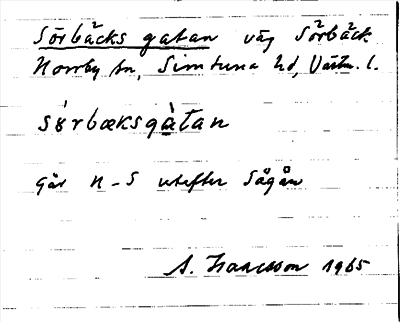 Sörbäcks gatan väg Sörbäck
Norrby sn, Simtuna hd, Västm. l.
sórbæksgàtan
går N-S utefter Sågån
A. Isaacsson 1965